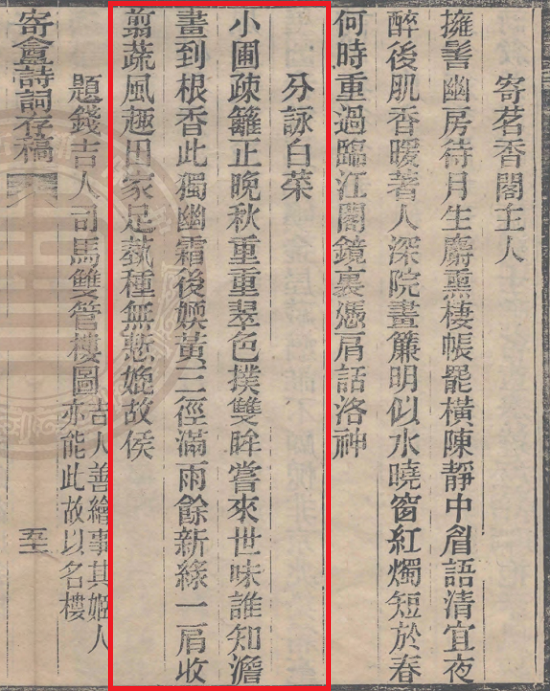 寄茗香閣主人
擁髻幽房待月生麝熏棲帳罷橫陳靜中眉語清宜夜
醉後肌香暖著人深院畫簾明似水曉窗紅燭短於春
何時重過臨江閣鏡裏憑肩話洛神
分詠白菜
小圃疎籬正晚秋重重翠色撲雙眸嘗來世味誰知澹
畫到根香此獨幽霜後嫩黃三徑滿雨餘新綠一肩收
翦蔬風趣田家足蓺種無慙媲故侯
題錢吉人司馬雙管樓圖
吉人善繪事其姬人
亦能此故以名樓
寄盦詩詞存稿